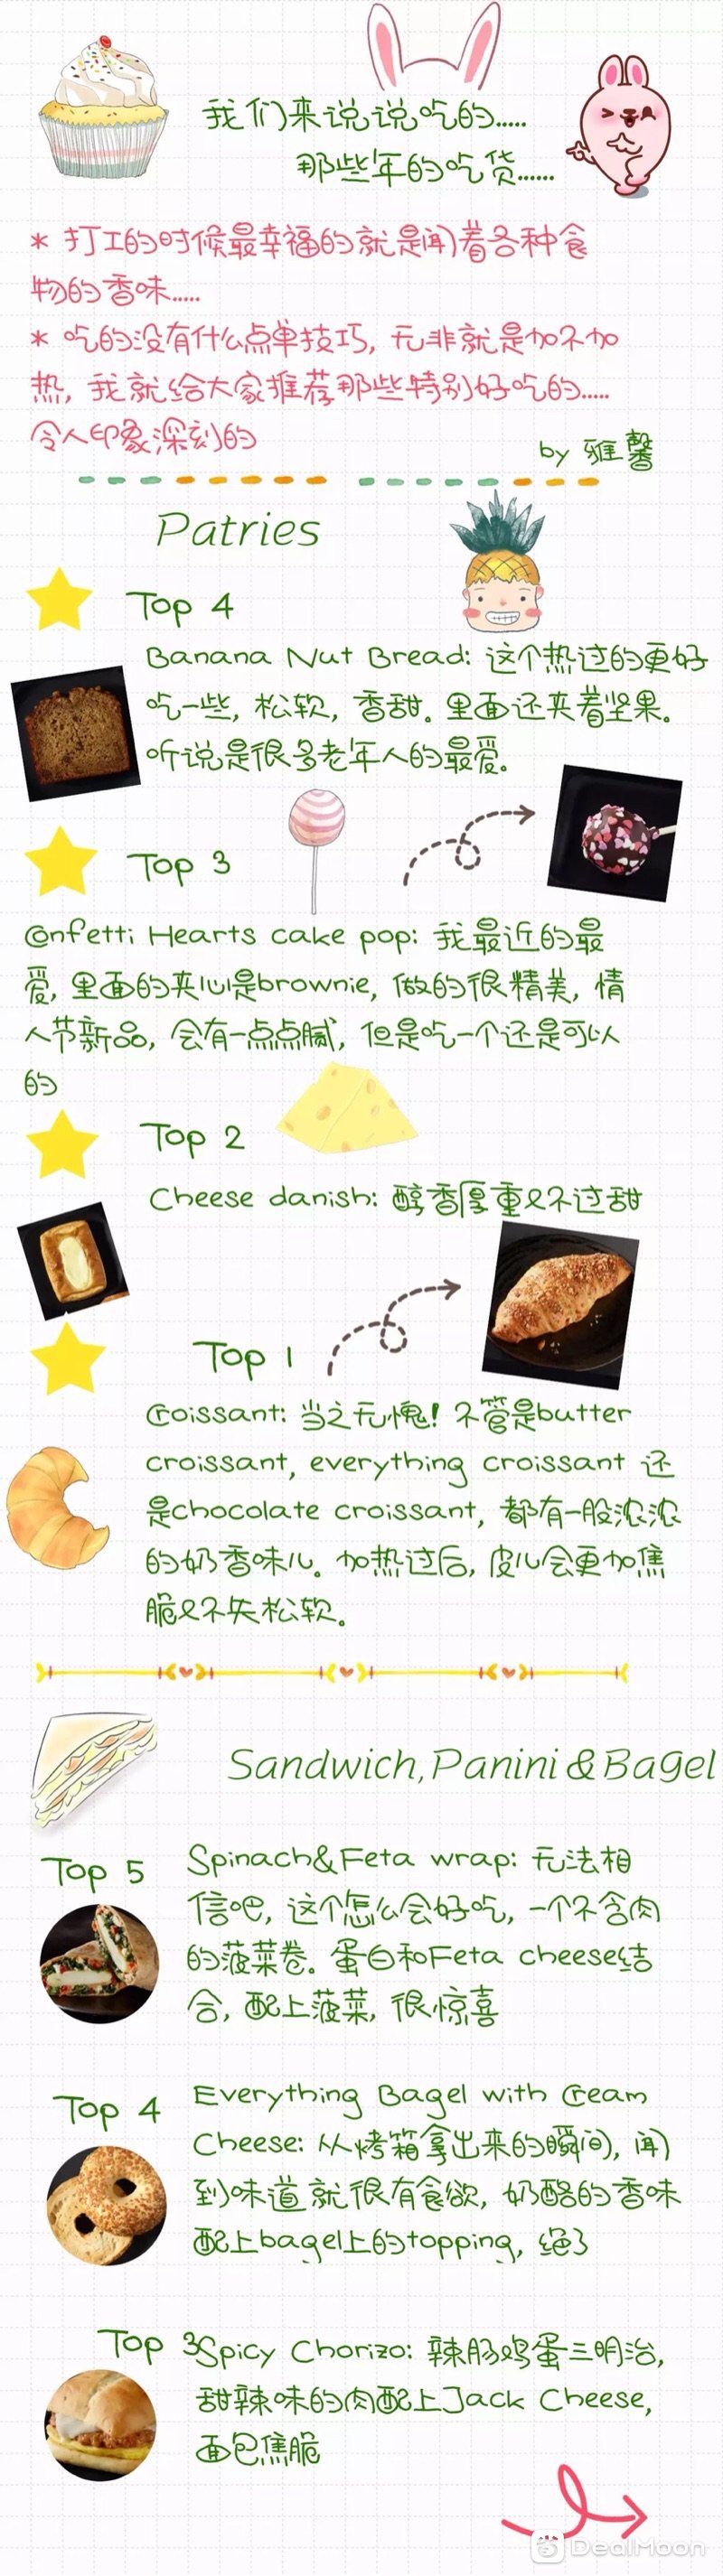 我们来说说吃的.....
那些年的吃货......
* 打工的时候最幸福的就是闻着各种食
物的香味.....
* 吃的没有什么点单技巧, 无非就是加不加
热, 我就给大家推荐那些特别好吃的.....
令人印象深刻的
by 雅馨
Patries
Top 4
Banana Nut Bread: 这个热过的更好
吃一些, 松软, 香甜。里面还夹着坚果。
听说是很多老年人的最爱。
Top 3
Confetti Hearts cake pop: 我最近的最
爱, 里面的夹心是brownie, 做的很精美, 情
人节新品, 会有一点点腻, 但是吃一个还是可以
的
Top 2
Cheese danish: 醇香厚重又不过甜
Top 1
Croissant: 当之无愧! 不管是butter
croissant, everything croissant 还
是chocolate croissant, 都有一股浓浓
的奶香味儿。加热过后, 皮儿会更加焦
脆又不失松软。
Sandwich,Panini&Bagel
Top 5
Spinach&Feta wrap: 无法相
信吧, 这个怎么会好吃, 一个不含肉
的菠菜卷。蛋白和Feta cheese结
合, 配上菠菜, 很惊喜
Top 4
Everything Bagel with Cream
Cheese: 从烤箱拿出来的瞬间, 闻
到味道就很有食欲, 奶酪的香味
配上bagel上的topping, 绝了
Top 3
Spicy Chorizo: 辣肠鸡蛋三明治,
甜辣味的肉配上Jack Cheese,
面包焦脆
DealMoon